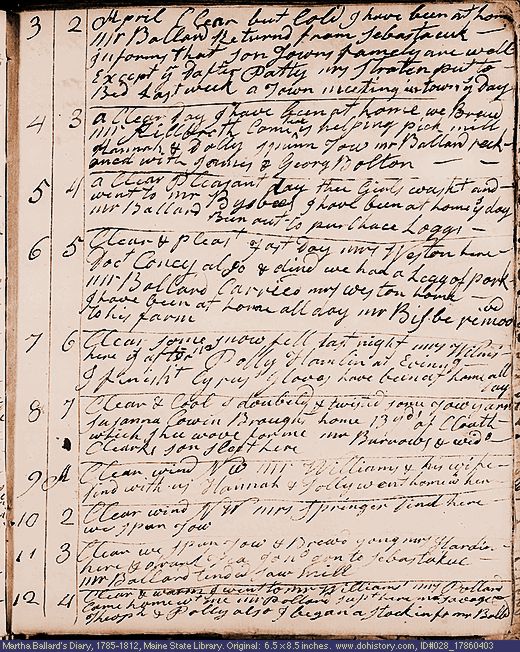 3 2 April Clear but Cold I have been at hom
mr Ballard returnd from Sebastacuk
informs that son Towns famely are well
Except ye dafter Patty mrs Straten put to
Bed last week a Town meeting in town ys day
4 3 a Clear day I have been at home we Brew
mr Hillbreth Came is helping pick mill
Hannah & Dolly spun Tow mr Ballard reck
oned with James & Georg Bolton
5 4 a Clear Pleasant day thee Girls washt and
went to mr Bysbees I have been at home ys day
mr Ballard Been out to purchace Loggs
6 5 Clear & pleast fast day mrs Weston here
Doct Coney also & dind we had a Legg of Pork
mr Ballard Carried mrs weston home
I have been at home all day mr Bisbe remoovd
to his farm
7 6 Clear some snow fell last night mrs Williams
here ys aftern Polly Hamlin at Evining
I finisht Cyrus Gloves have been at home all
day
8 7 Clear & Cool I doubeld & twisd some Tow yarn
Susanna Cowin Brought home 13 yd of Cloath
which she wove for me mr Burrows & wido
Clearks son slept here
9 A Clear wind NW mr Williams & his wife
dind with us Hannah & Dolly went home with her
10 2 Clear wind NW mrs Springer dind here
we spun Tow
11 3 Clear we spun Tow & Brewd young mrs Hardin
here & drank Tea gon to Sebastakuc
mr Ballard tends saw mill
12 4 Clear & warm I went to mr Williams mrs Pollard
Came home with me mr Pollard slept here
Theoph & Polly also I began a Stockin for mr Balld
Martha Ballard's Diary, 1785-1812, Maine State Library. Original: 6.5 x 8.5 inches. www.dohistory.com, ID#028_17860403